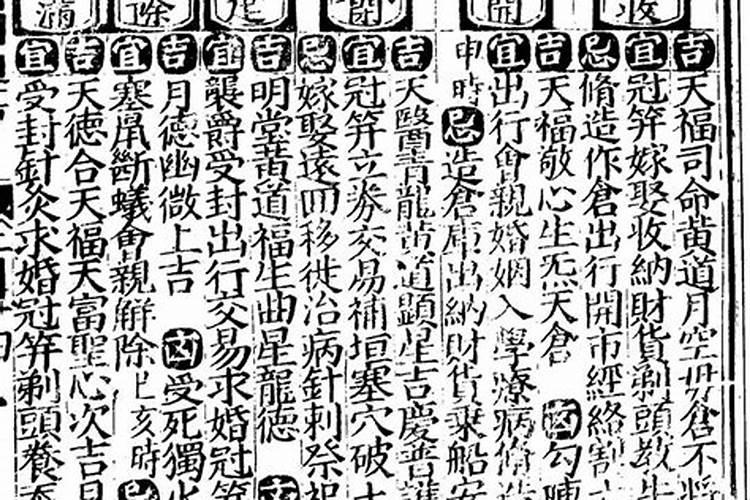 收
吉天福司命黄道月空母倉不將
宜冠笄嫁娶收納財貨剃頭教牛
忌脩造作倉出行開市經絡割
開
吉天福敬心生炁天倉 凶勾陳
宜出行會親婚姻入學療病脩造
申時 忌造倉庫出納財貨乘船安
閉
吉天醫青龍黄道顯星吉慶普護
宜冠笄立券交易補垣塞穴破土
忌嫁娶遠回移徙治病針刺祭祀
建
吉明堂黄道福生曲星龍德 吉
宜襲爵受封出行交易求婚冠笄
除
吉月德幽微上吉 凶受死獨火
宜塞鼠斷蟻會親解除 亥時 忌
滿
吉天德合天福天富聖心次吉
宜受封針灸求婚冠笄剃頭養